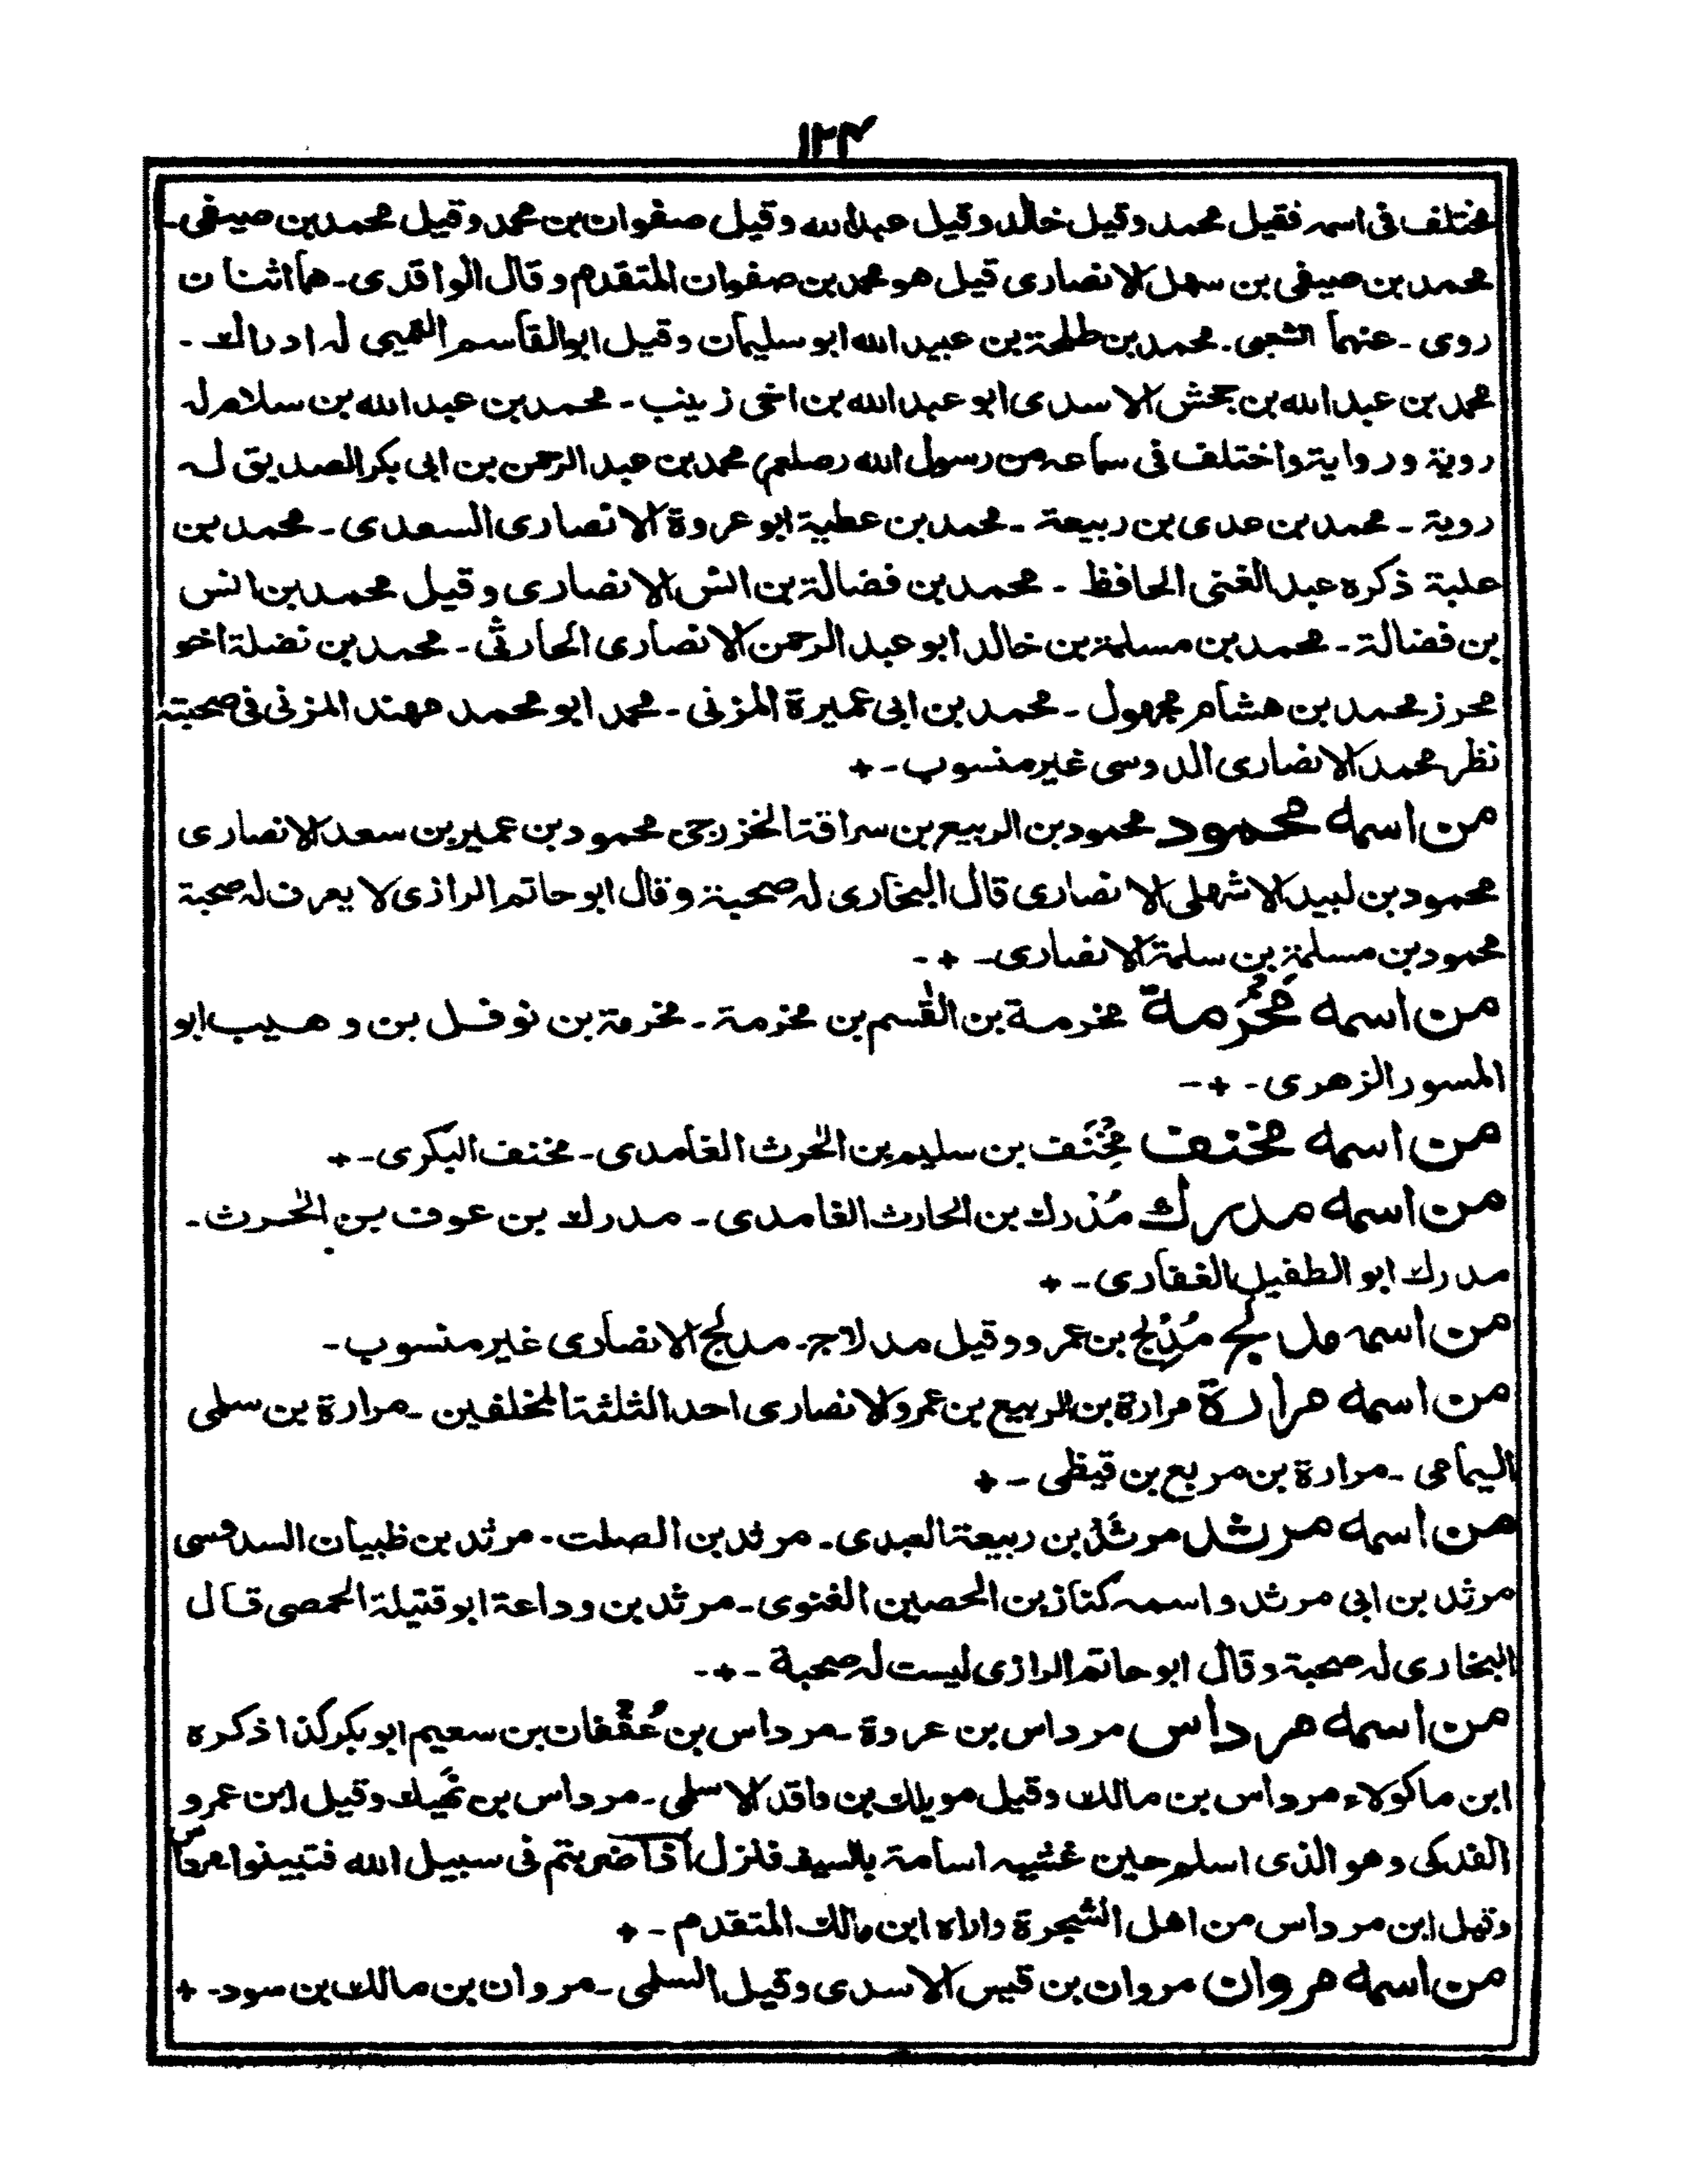 ۱۲۴
مختلف فی اسمہ فقیل محمد وقیل خالد وقیل عبد الله وقیل صفوان بن محمد وقیل محمد بن صیفی۔
محمد بن صیفی بن سهل الانصاری قیل هو محمد بن صفوان المتقدم وقال الواقدی۔ هما اثنان
روی۔ عنهما الشعبی۔ محمد بن طلحة بن عبید الله ابو سلیمان وقیل ابو القاسم التمیمی لہ ادراك۔
محمد بن عبد الله بن جحش الاسدی ابو عبد الله بن اخی زینب۔ محمد بن عبد الله بن سلام لہ
رویة وروایة واختلف فی سماعہ من رسول الله (صلعم) محمد بن عبد الرحمن بن ابی بکر الصدیق لہ
رویة۔ محمد بن عدی بن ربیعة۔ محمد بن عطیة ابو عروة الانصاری السعدی۔ محمد بن
علبة ذکره عبد الغنی الحافظ۔ محمد بن فضالة بن انس الانصاری وقیل محمد بن انس
بن فضالة۔ محمد بن مسلمة بن خالد ابو عبد الرحمن الانصاری الحارثی۔ محمد بن نضلة اخو
محرز محمد بن هشام مجهول۔ محمد بن ابی عمیرة المزنی۔ محمد ابو محمد مهند المزنی فی صحبتہ
نظر محمد الانصاری الدوسی غیر منسوب۔+
من اسمه محمود محمود بن الربیع بن سراقة الخزرجی محمود بن عمیر بن سعد الانصاری
محمود بن لبید الاشهلی الانصاری قال البخاری لہ صحبة وقال ابو حاتم الرازی لا یعرف لہ صحبة
محمود بن مسلمة بن سلمة الانصاری۔+۔
من اسمه مَخْرَمة مخرمة بن القٰسم بن مخزمة۔ مخرمة بن نوفل بن وهیب ابو
المسور الزهری۔+۔
من اسمه مخنف مِخْنَف بن سلیم بن الحٰرث الغامدی۔ مخنف البکری۔+
من اسمه مدرك مُذرك بن الحارث الغامدی۔ مدرك بن عوف بن الحٰرث۔
مدرك ابو الطفیل الغفاری۔+
من اسمہ مدلج مُدْلِج بن عمرو وقیل مدلاج۔ مدلج الانصاری غیر منسوب۔
من اسمه مرارة مرارة بن الربیع بن عمرو الانصاری احد الثلثة المخلفین۔ مرارة بن سلمی
الیمامی۔ مرارة بن مربع بن قیظی۔+
من اسمه مرثد مرثَد بن ربیعة العبدی۔ مرثد بن الصلت۔ مرثد بن ظبیان السدوسی
مرثد بن ابی مرثد واسمہ کناز بن الحصین الغنوی۔ مرثد بن وداعة ابو قتیلة الحمصی قال
البخاری لہ صحبة وقال ابو حاتم الرازی لیست لہ صحبة۔+۔
من اسمه مرداس مرداس بن عروة۔ مرداس بن عُقْفان بن سعیم ابو بکر کذا ذکره
ابن ماکولاء مرداس بن مالك وقیل مویلك بن واقد الاسلمی۔ مرداس بن نَهیك وقیل ابن عمرو
الفدکی وهو الذی اسلم حین غشیہ اسامة بالسیف فنزل اذا ضربتم فی سبیل الله فتبینوا مرداس
وقیل ابن مرداس من اهل الشجرة واراه ابن مالك المتقدم۔+
من اسمه مروان مروان بن قیس الاسدی وقیل السلمی۔ مروان بن مالك بن سود۔+